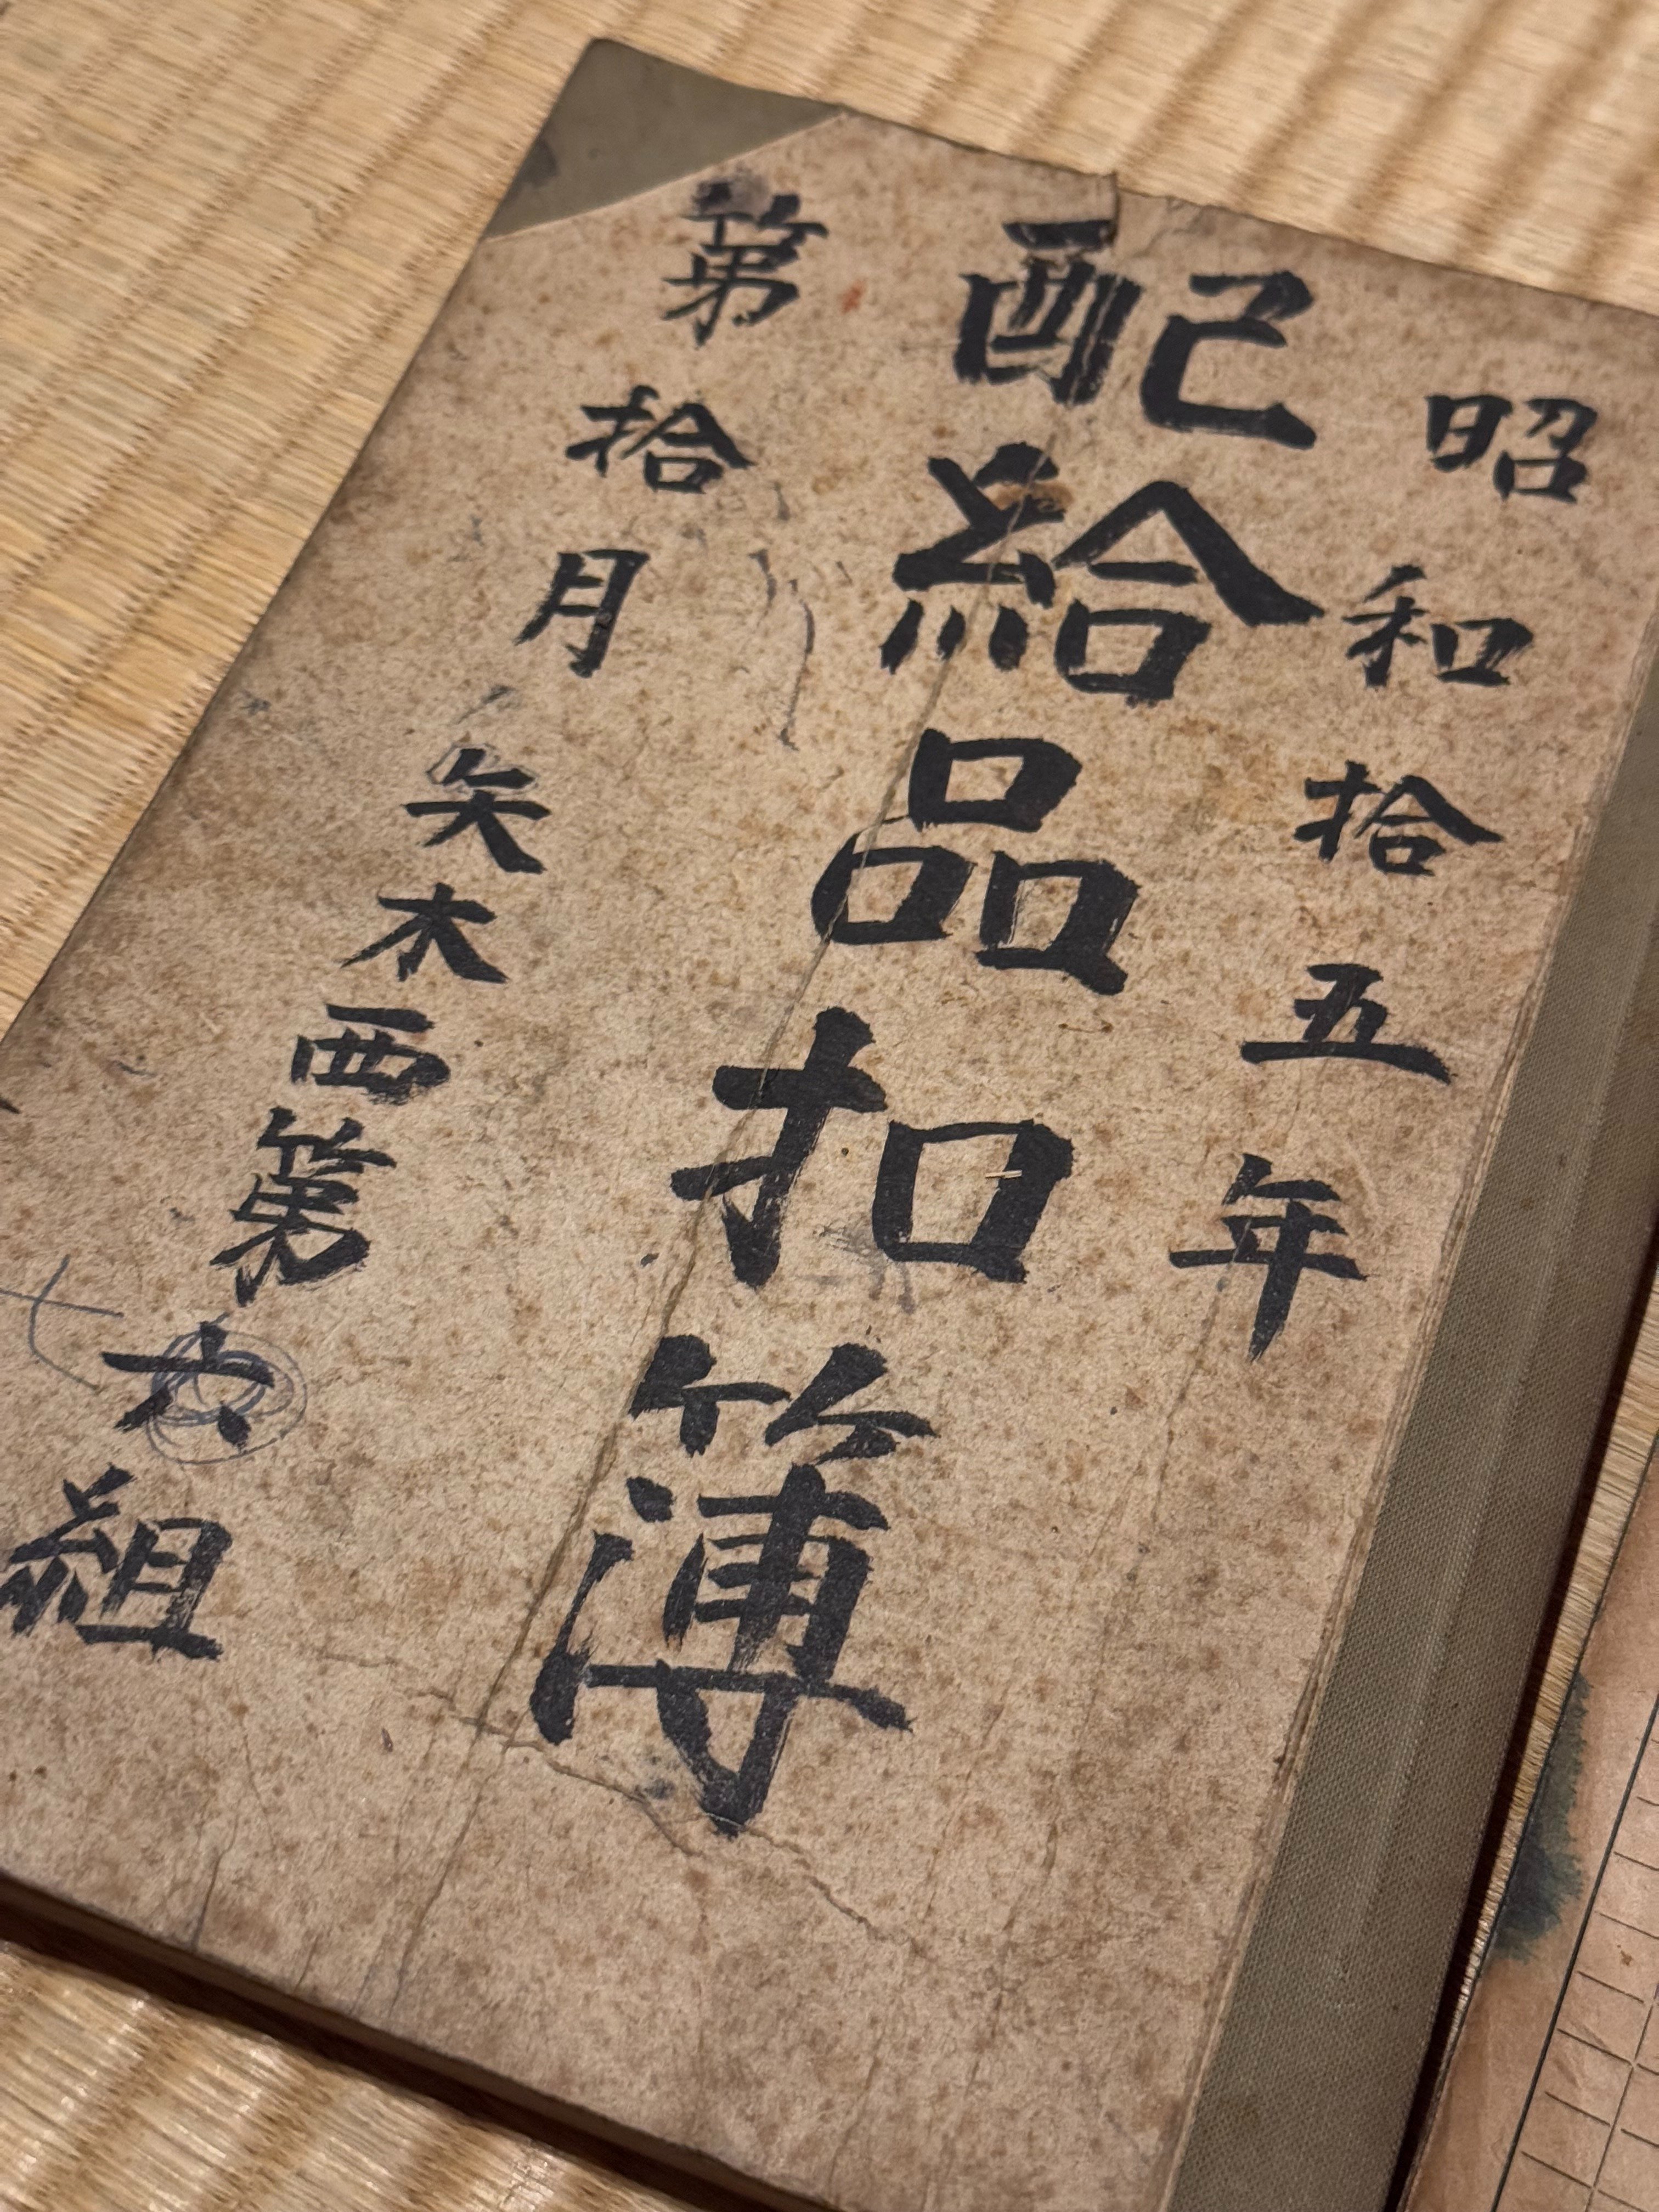 昭和拾五年
配給品扣簿
第拾月
矢木西第六組
七